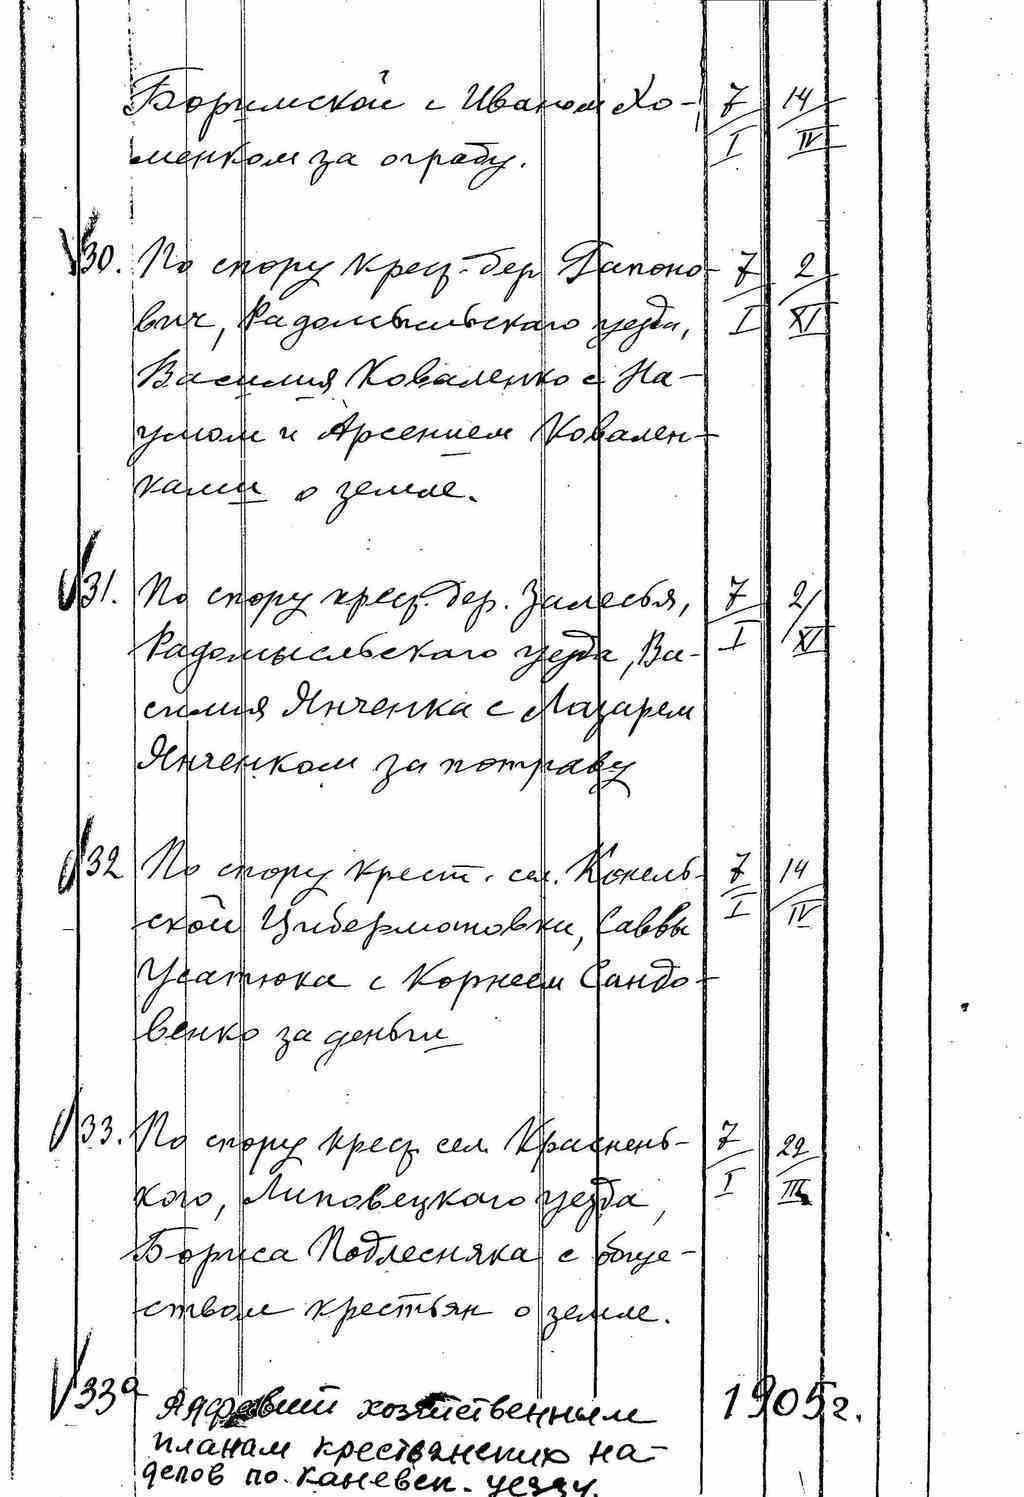 Боримской с Иваном Хо- 7/I 14/IV
менком за ограду.
30. По спору крес. дер. Гапоно- 7/I 2/XI
вич, Радомысльскаго уезда,
Василия Коваленко с На-
умом и Арсением Ковален-
ками о земле.
31. По спору крес. дер. Залесья, 7/I 2/XI
Радомысльскаго уезда, Ва-
силия Янченка с Лазарем
Янченком за потраву
32 По спору крест. сел. Конель- 7/I 14/IV
ской Цибермановки, Саввы
Усатюка с Корнеем Сандо-
венко за деньги
33. По спору крес. сел. Краснень- 7/I 22/III
кого, Липовецкаго уезда,
Бориса Подлесняка с обще-
ством крестьян о земле.
33а хозяйственным 1905 г.
планам крестьянских на-
делов по Каневск. уезду.